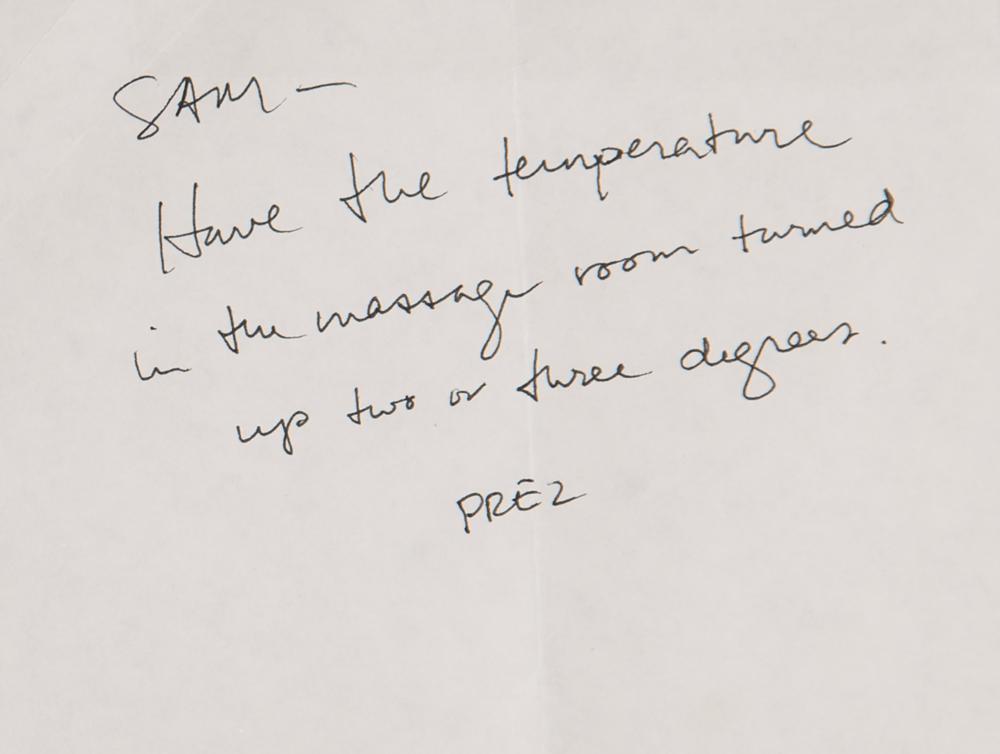 SAM —
Have the temperature
in the massage room turned
up two or three degrees.
PREZ